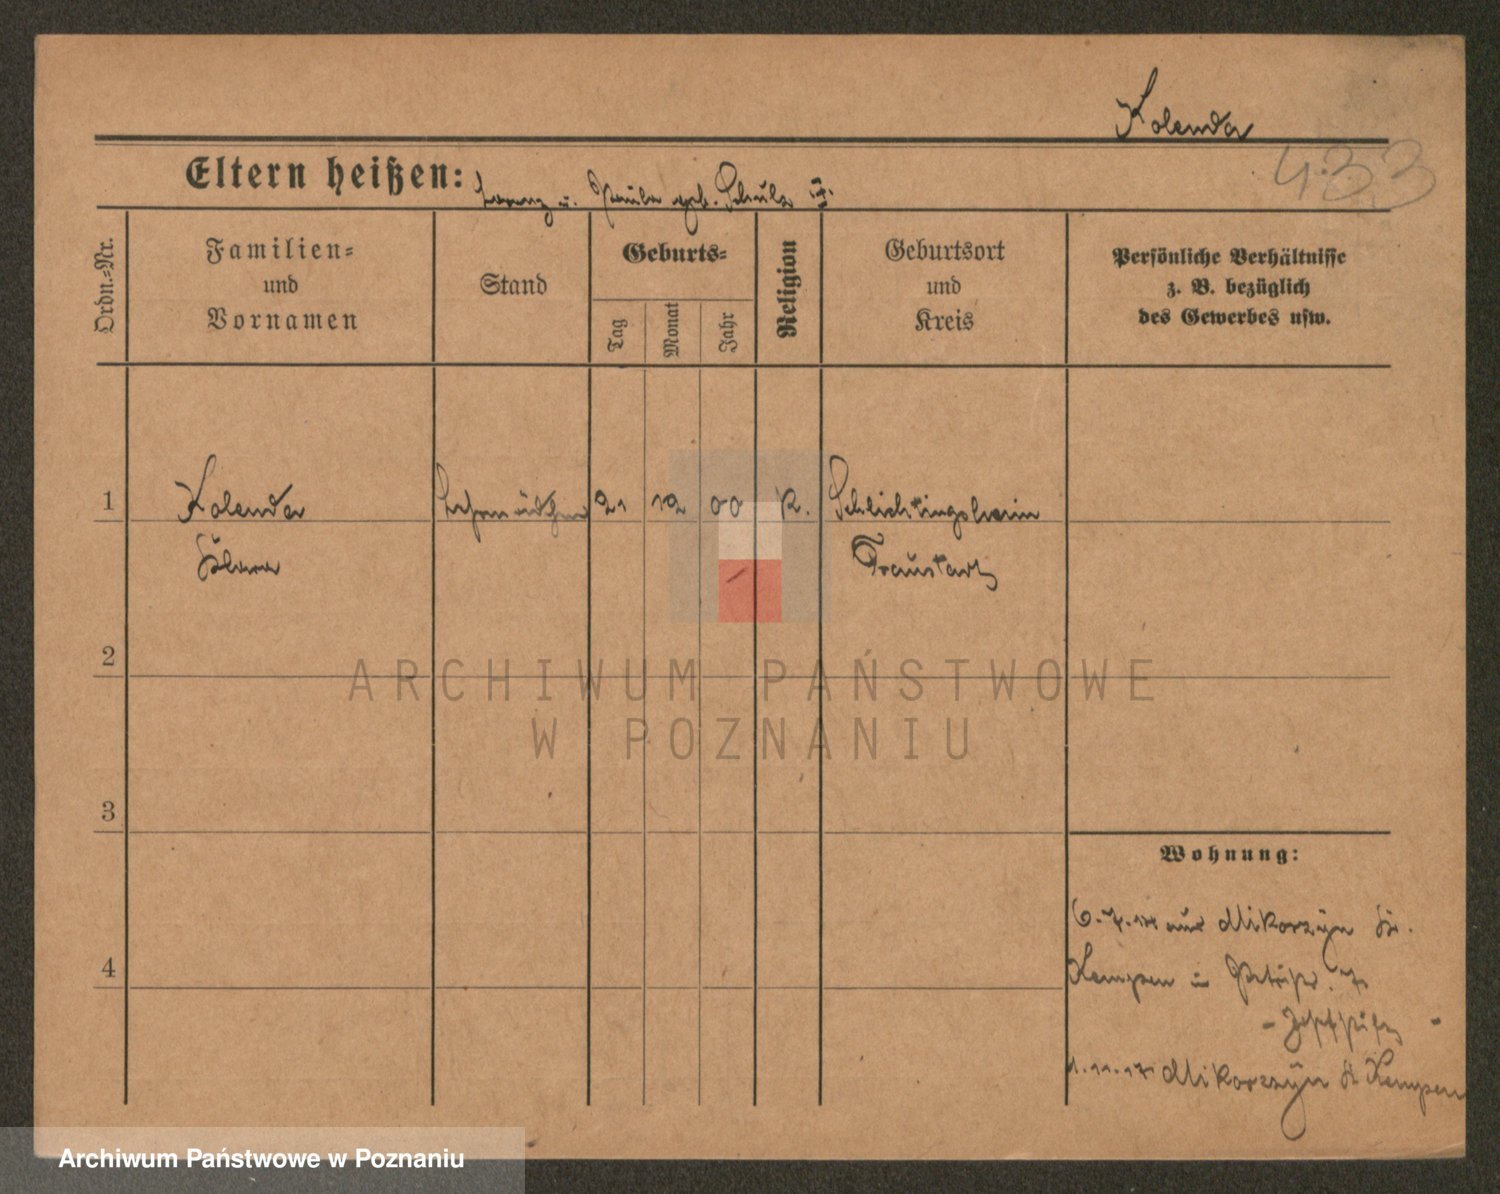 Kolenda
433
Eltern heißen: Lorenz u. Paula geb. Schulz
Ordn.-Nr.
Familien-
und
Vornamen
Stand
Geburts-
Tag
Monat
Jahr
Religion
Geburtsort
und
Kreis
Persönliche Verhältnisse
z. B. bezüglich
des Gewerbes usw.
1
Kolenda
21 12 00 K. Schlichtingsheim
Fraustadt
2
ARCHIWUM PAŃSTWOWE
W POZNANIU
3
Wohnung:
6.7.17 aus Mikorzyn Kr.
4
Kempen
1.11.17 Mikorzyn Kr Kempen
Archiwum Państwowe w Poznaniu